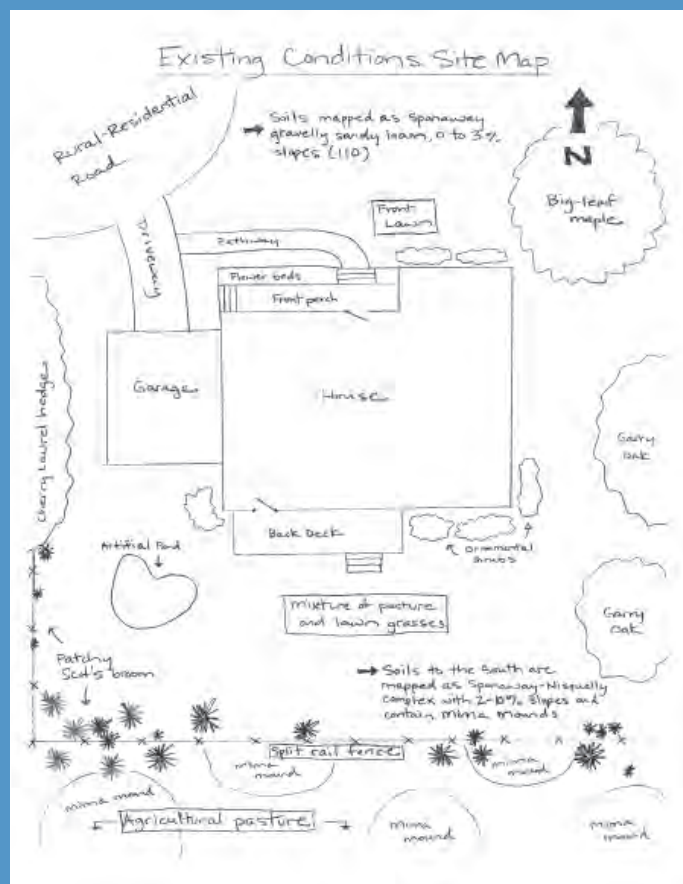 Existing Conditions Site Map
Rural-Residential
Road
→ Soils mapped as Spanaway
gravelly sandy loam, 0 to 3%
slopes (110)
N
Big-leaf
maple
Front
Lawn
Driveway
Pathway
Flower beds
Front porch
Garage
House
Cherry Laurel hedge
Garry
Oak
Back Deck
Ornamental
shrubs
Artifial Pond
Mixture of pasture
and lawn grasses
Garry
Oak
Patchy
Scot's broom
→ Soils to the South are
mapped as Spanaway-Nisqually
complex with 2-10% slopes and
contain mima mounds
Split rail fence
mima
mound
mima
mound
mima mound
Agricultural pasture
mima
mound
mima
mound